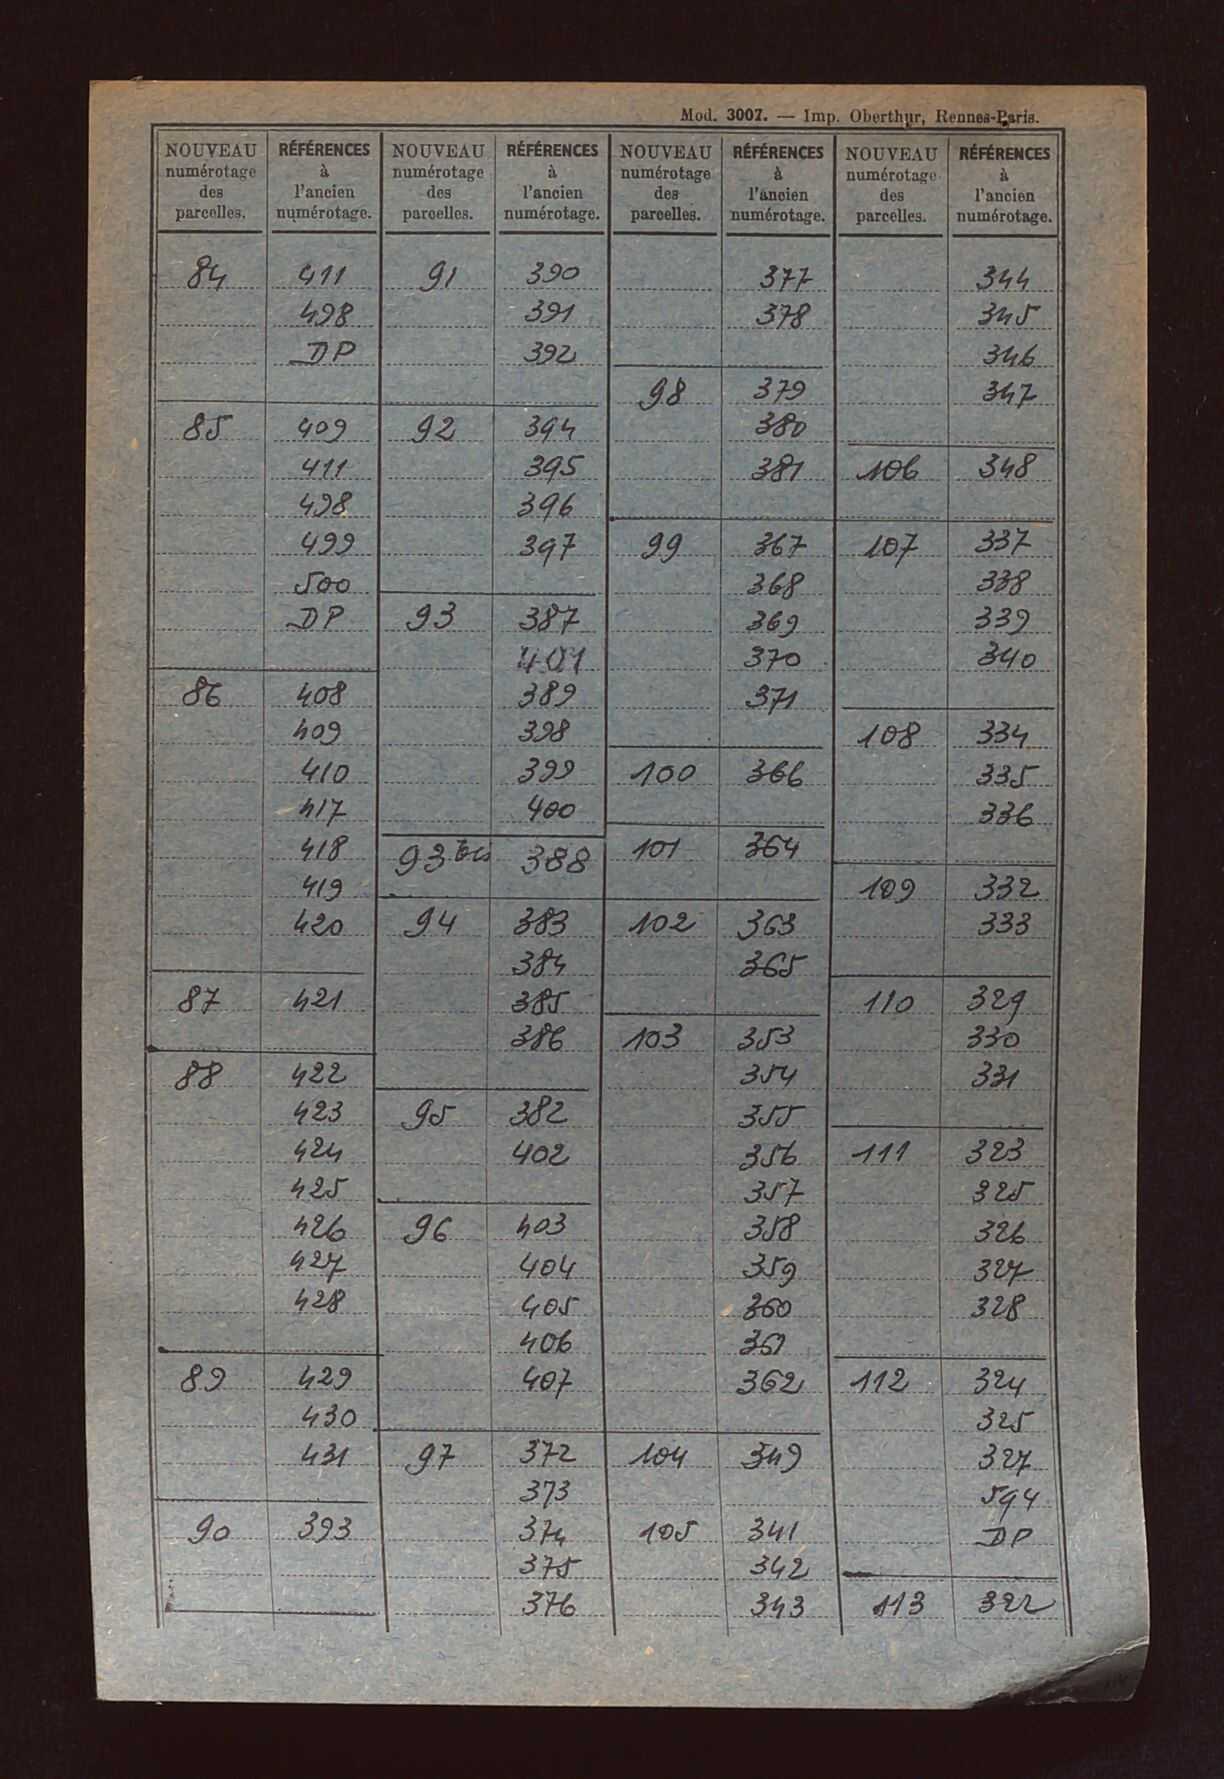 Mod. 3007. — Imp. Oberthur, Rennes-Paris.
NOUVEAU numérotage des parcelles.
RÉFÉRENCES à l'ancien numérotage.
NOUVEAU numérotage des parcelles.
RÉFÉRENCES à l'ancien numérotage.
NOUVEAU numérotage des parcelles.
RÉFÉRENCES à l'ancien numérotage.
NOUVEAU numérotage des parcelles.
RÉFÉRENCES à l'ancien numérotage.
84 411
498
DP
85 409
411
498
499
500
DP
86 408
409
410
417
418
419
420
87 421
88 422
423
424
425
426
427
428
89 429
430
431
90 393
91 390
391
392
92 394
395
396
397
93 387
401
389
398
399
400
93 bis 388
94 383
384
385
386
95 382
402
96 403
404
405
406
407
97 372
373
374
375
376
377
378
98 379
380
381
99 367
368
369
370
371
100 366
101 364
102 363
365
103 353
354
355
356
357
358
359
360
361
362
104 349
105 341
342
343
344
345
346
347
106 348
107 337
338
339
340
108 334
335
336
109 332
333
110 329
330
331
111 323
325
326
327
328
112 324
325
327
594
DP
113 322